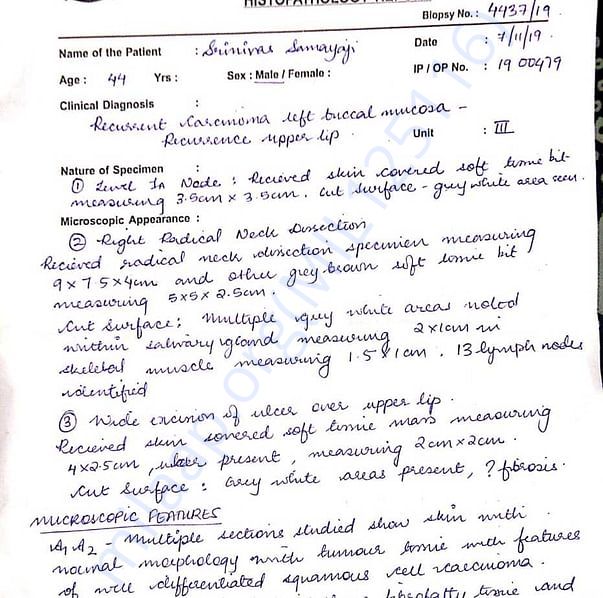 HISTOPATHOLOGY RE
Biopsy No. : 4437/19.
Name of the Patient : Srinivas Samayaji
Date : 7/11/19.
Age : 44 Yrs : Sex : Male / Female :
IP / OP No. : 19 00479
Clinical Diagnosis :
Recurrent Carcinoma left buccal mucosa -
Recurrence upper lip.
Unit : III
Nature of Specimen :
① Level In Node : Recieved skin covered soft tissue bit
measuring 3.5cm x 3.5cm. Cut surface - grey white area seen.
Microscopic Appearance :
② Right Radical Neck Dissection
Recieved radical neck dissection specimen measuring
9 x 7.5 x 4cm and other grey brown soft tissue bit
measuring 5x5x 2.5cm.
Cut surface: Multiple grey white areas noted
within salivary gland measuring 2x1cm in
skeletal muscle measuring 1.5 x 1cm. 13 lymph nodes
identified
③ Wide excision of ulcer over upper lip.
Recieved skin covered soft tissue mass measuring
4x2.5cm, ulcer present, measuring 2cm x 2cm.
Cut Surface : Grey white areas present, ? fibrosis.
MICROSCOPIC FEATURES
A1 A2 - Multiple sections studied show skin with
normal morphology with tumour tissue with features
of well differentiated squamous cell carcinoma.
fibrofatty tissue and